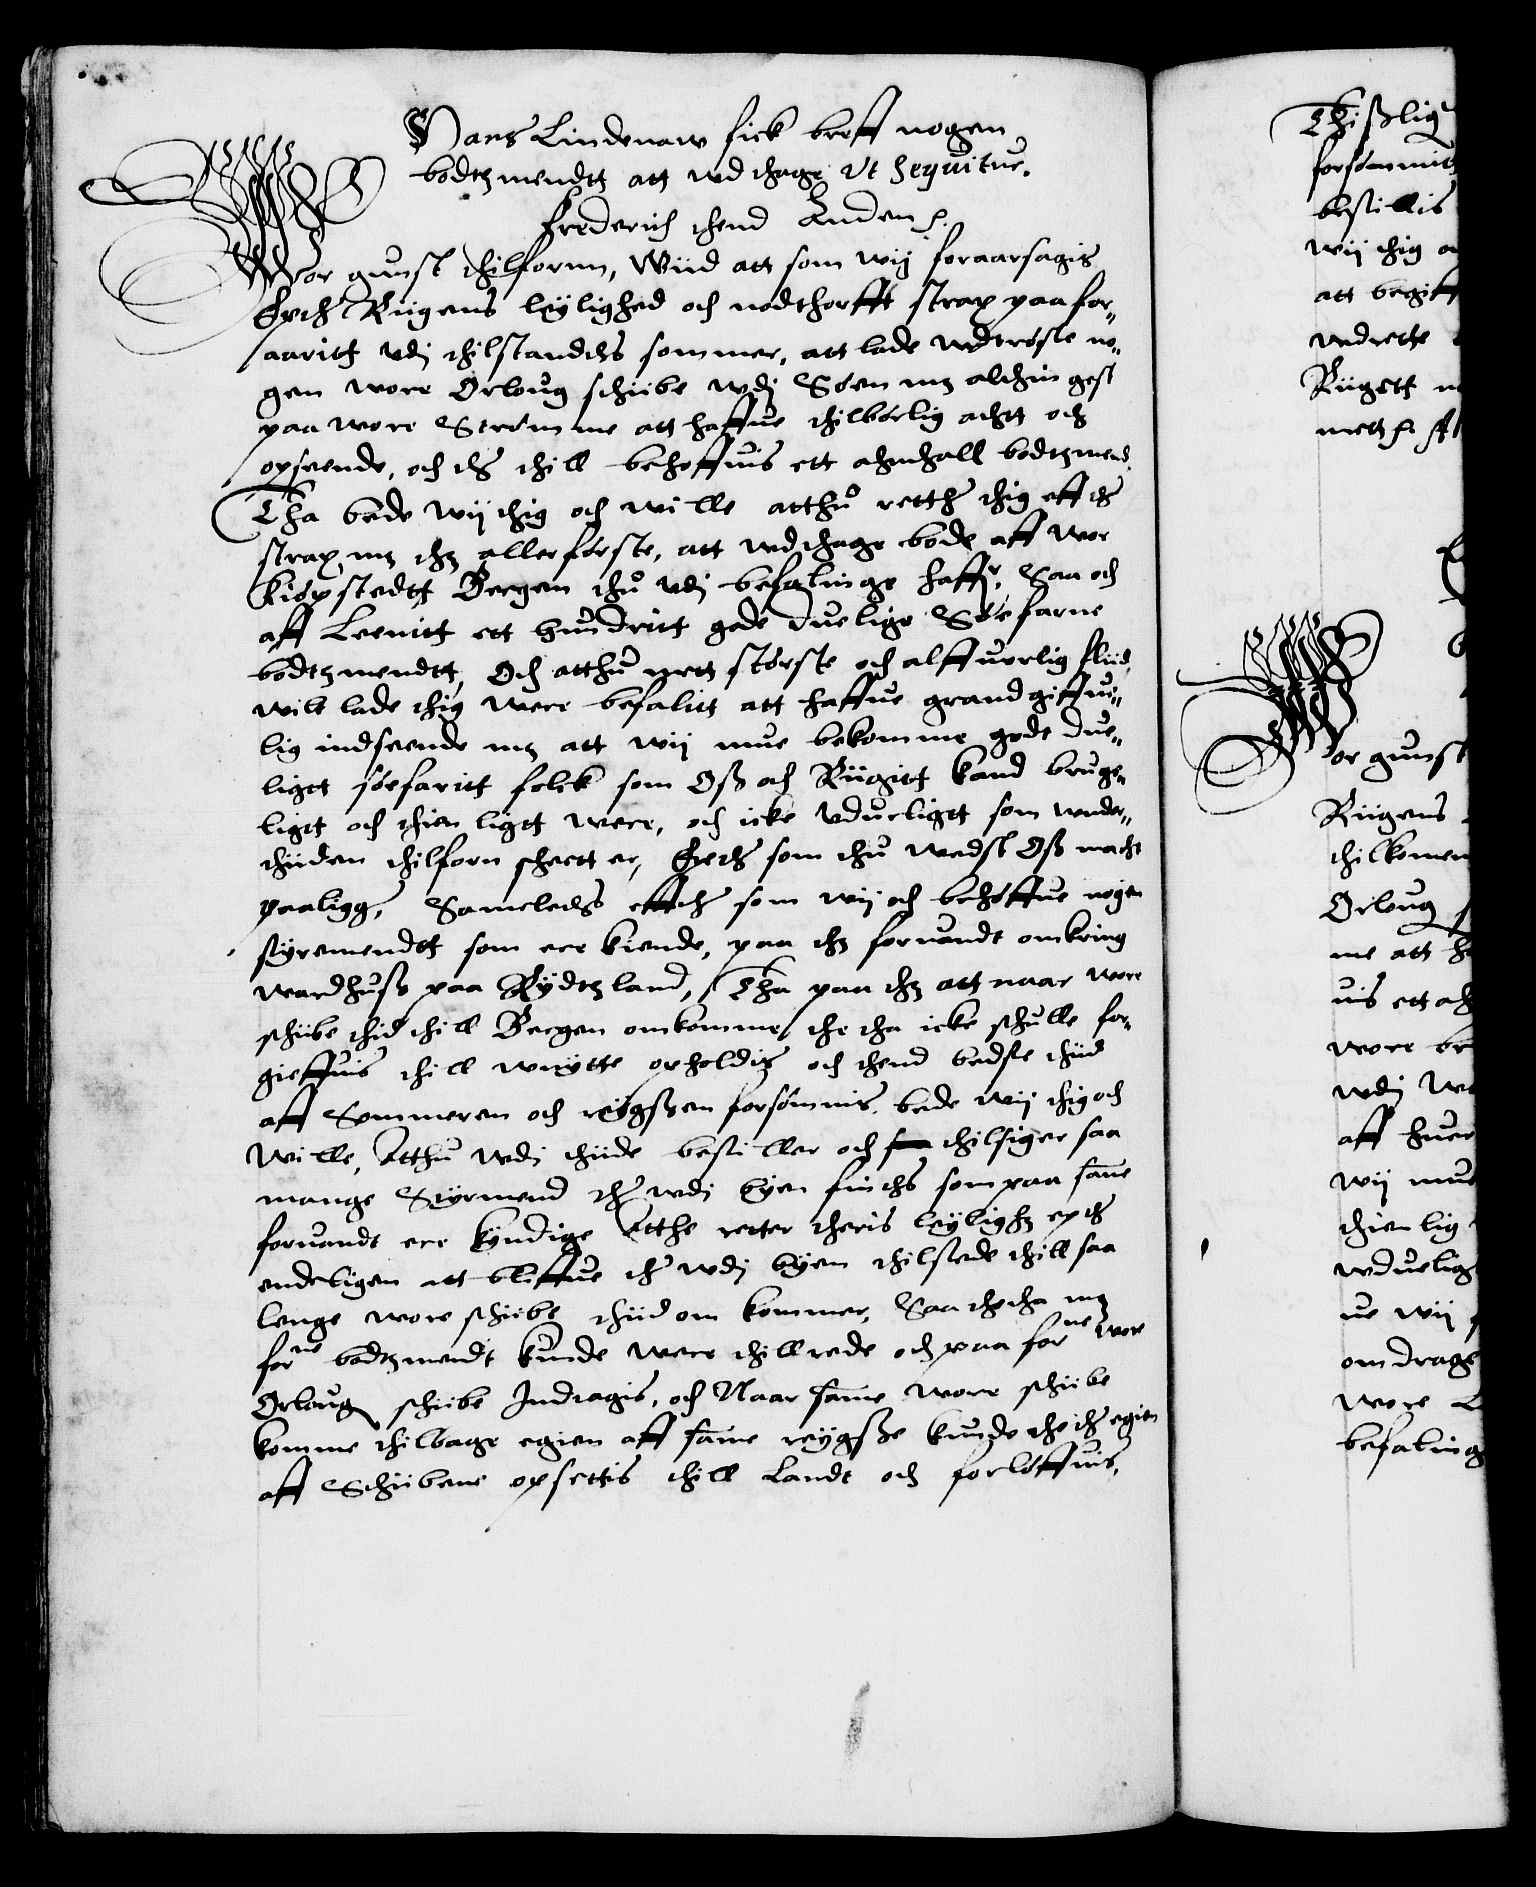 Hans Lindenaw fick breff nogen
bodtzmendtt att wdthage Vt Sequitur.
Frederich thend Anden etc.
Wor gunst thilfornn, Wiid att som wij foraarsagis
Effther Riigens leylighed och nodthorfft strax paa for„
aaritt vdj thilstandes sommer, att lade wdtröste no„
gen wore Orloug schiibe wdj Söen mz althingest
paa wore Strömme att haffue thilbörlig achtt och
opseende, och ther thill behoffuis ett ahnthall bodtzmend
Tha bede wij thig och wille atthu retther thig effther
strax, mz thz allerförste, att wdthage bode aff wor
kiöpstedtt Bergen thu vdj befalinge haffuer, Saa och
aff Leenitt ett hundritt gode duelige Söefarne
bodtzmendtt, Och atthu mett störste och alffuorlig fliid
will lade thig were befalitt att haffue grandgiffui„
lig indseende mz att wij mue bekomme godt due„
ligtt söefaritt folck som Oss och Riigitt kand brugen
ligtt och thienligtt were, och icke vdueligtt som wnder„
thiiden thilforn scheett er, Effther som thu wedst Oss macht
paaligger, Sameledes effther som wij och behöffue nogen
styremendtt som ere kiende, paa thz foruandt omkring
wardhuss paa Rydtzland, Tha paa thz att naar wore
schiibe thid thill Bergen omkomme, the tha icke schulle for„
gieffuis thill wnytte opholdis och thend bedste thiid
aff Sommeren och reygssen forsömmis, bede wij thig och
wille, Atthu wdj thiide bestiller och thilsiger saa
mange Styrmend ther wdj byen findes som paa same
foruandt ere kyndige Atthe retter theris leylighz effther
endeligen att bliffue ther wdj byen thilstede thill saa
lenge wore schiibe thiid om kommer, Saa the tha mz
forne bodtzmendt kunde were thillrede och paa forne wore
Orloug schiibe Indragis, och Naar same wore schiibe
komme thilbage egien aff same reygsse kunde the ther egien
aff Schiibene opsettis thill Landt och forlöffuis.
Thisslig
forsömmit
bestillis
wij thig
att begiff
wdrette
Riigett
mett etc.
or gunst
Riigens
thilkomen
Orloug
me att
uis ett ah
wore
wdj
aff huer
wij mue
thienlig
wduelig
ue wij
omdrage
wore
befaling